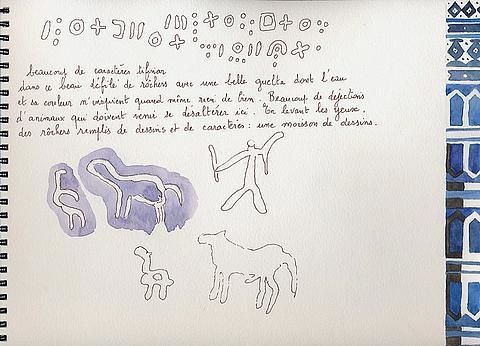 beaucoup de caractères tifinar
dans ce beau défilé de rochers avec une belle guelta dont l'eau
et sa couleur n'inspirent quand même rien de bien. Beaucoup de déjections
d'animaux qui doivent venir se désaltérer ici. En levant les yeux,
des rochers remplis de dessins et de caractères : une moisson de dessins.